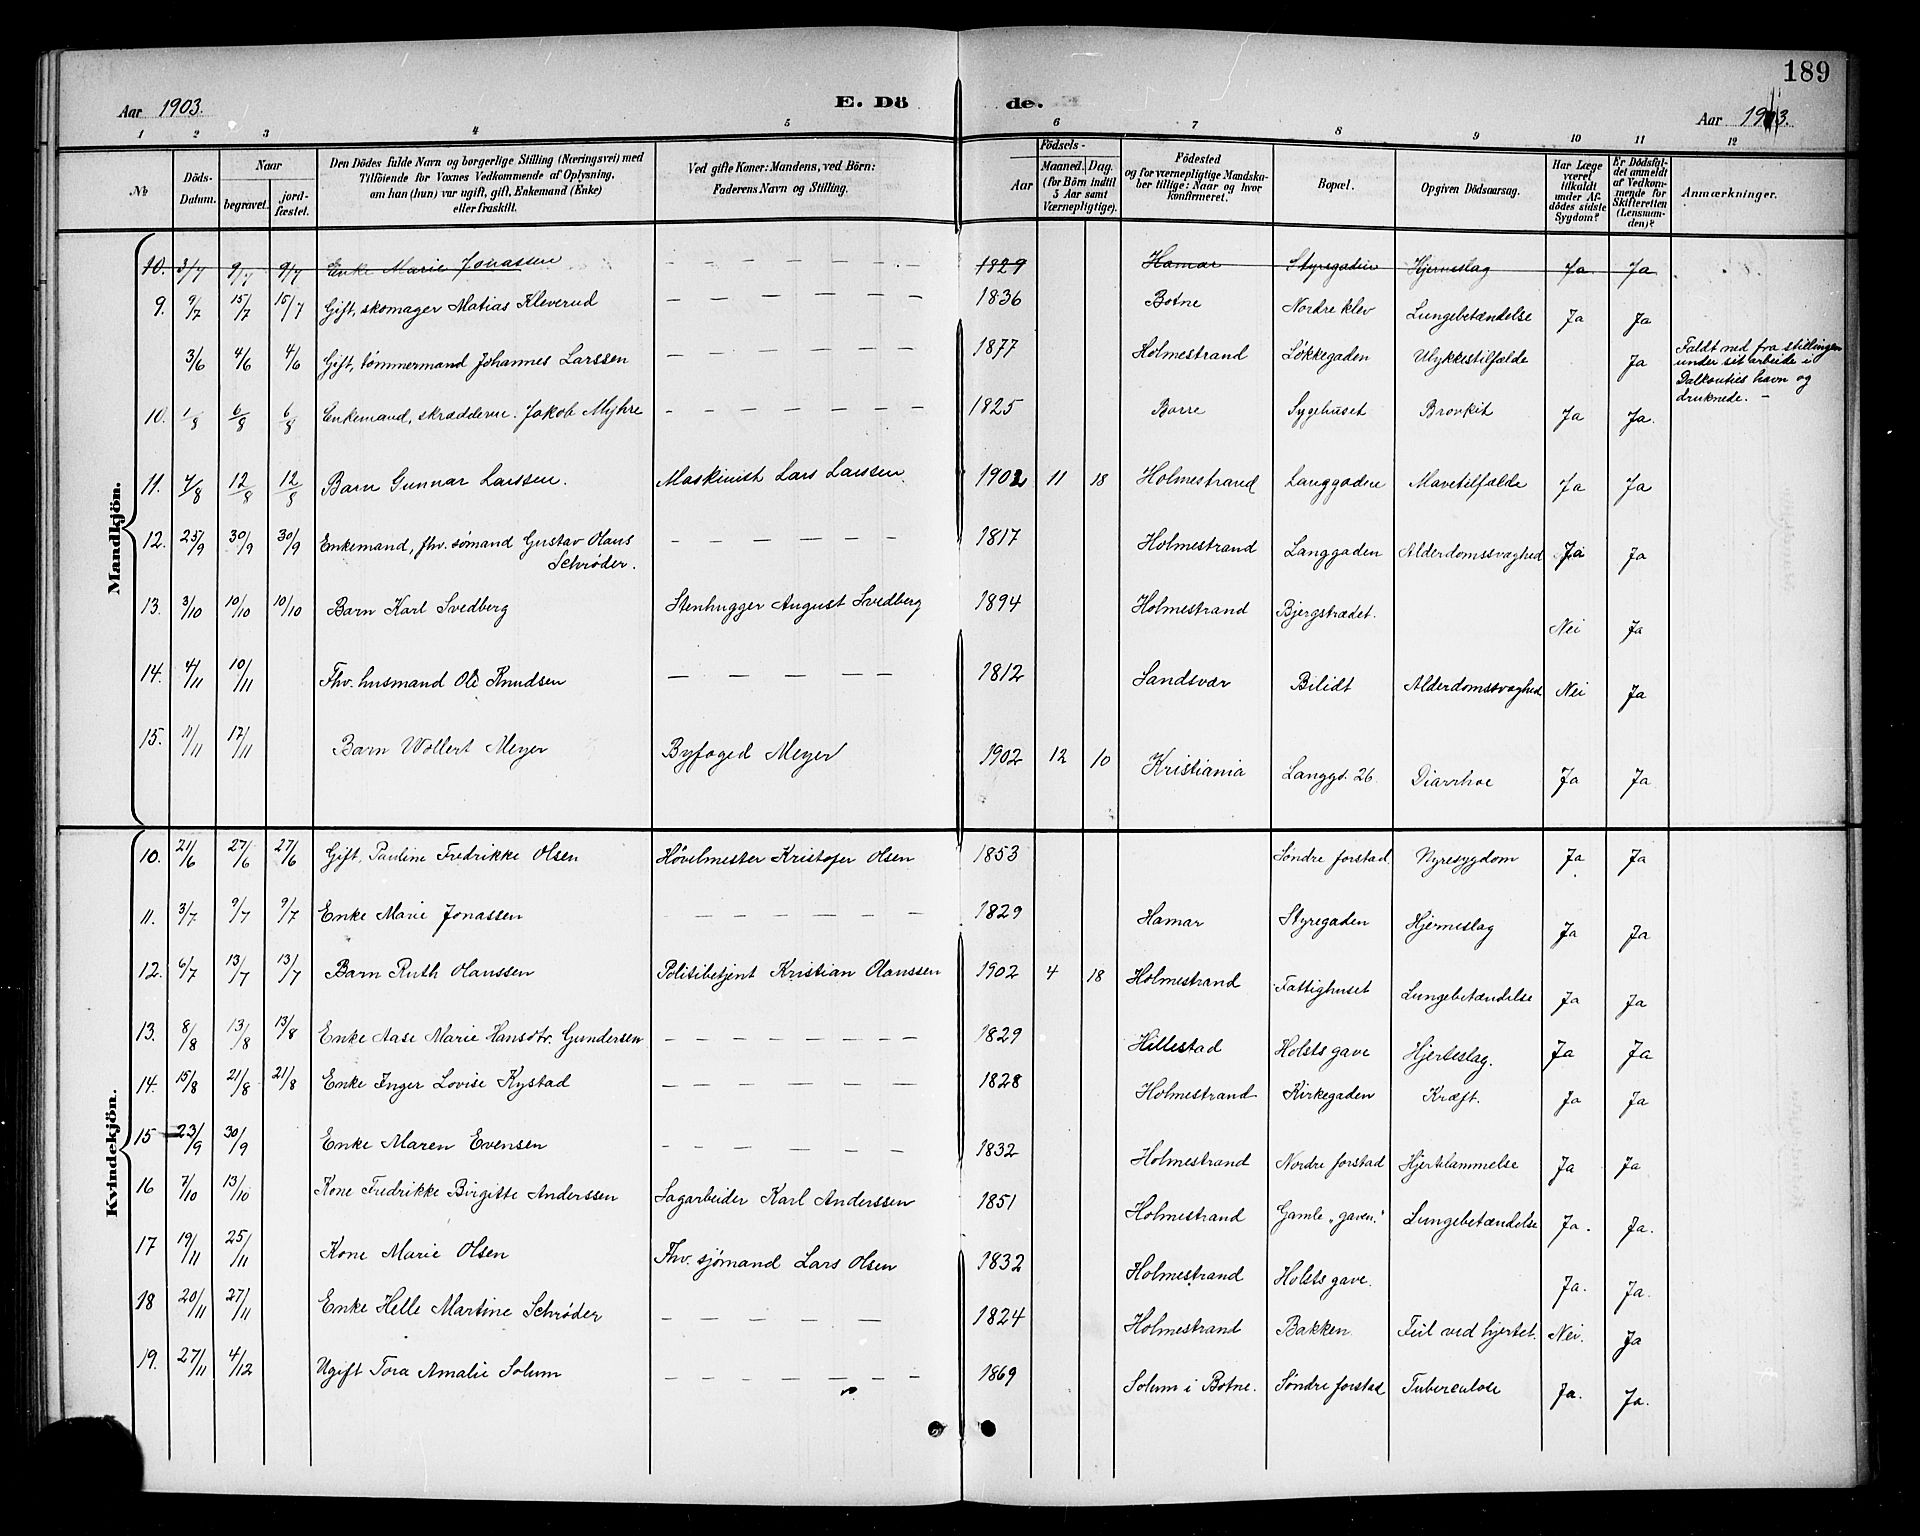 189
Aar 1903. E. Dö de. Aar 1903.
1 2 3 4 5 6 7 8 9 10 11 12
No
Döds-Datum.
Naar
begravet.
jord-fæstet.
Den Dödes fulde Navn og borgerlige Stilling (Næringsvei) med
Tilföiende for Voxnes Vedkommende af Oplysning,
om han (hun) var ugift, gift, Enkemand (Enke)
eller fraskilt.
Ved gifte Koner: Mandens, ved Börn:
Faderens Navn og Stilling.
Födsels-
Aar
Maaned. Dag.
(for Börn indtil
5 Aar samt
Værnepligtige).
Födested
og for værnepligtige Mandska-
ber tillige: Naar og hvor
konfirmeret.
Bopæl.
Opgiven Dödsaarsag.
Har Læge
været
tilkaldt
under Af-
dödes sidste
Sygdom?
Er Dödsfal-
det anmeldt
af Vedkom-
mende for
Skifteretten
(Lensman-
den)?
Anmærkninger.
Mandkjön.
10. 3/7 9/7 9/7 Enke Marie Jonassen 1829 Hamar Styregaden Hjerneslag Ja Ja
9. 9/7 15/7 15/7 Gift, skomager Matias Kleverud — — — — — — 1836 Botne Nordre klev Lungebetændelse Ja Ja
3/6 4/6 4/6 Gift, tømmermand Johannes Larssen — — — — — — 1877 Holmestrand Løkkegaden Ulykkestilfælde Ja
Faldt ned fra stillingen
under sit arbeide i
havn og
druknede. —
10. 1/8 6/8 6/8 Enkemand, skrædderm. Jakob Myhre — — — — — — 1825 Borre Sygehuset Brovkit Ja Ja.
11. 4/8 12/8 12/8 Barn Gunnar Larssen. Maskinist Lars Larssen. 1902 11 18 Holmestrand Langgadne Mavetilfælde Ja Ja
12. 25/9 30/9 30/9 Enkemand, fhv. sømand Gustav Olaus
Schrøder. — — — — — — 1817 Holmestrand Langgaden Alderdomssvaghed Ja Ja
13. 3/10 10/10 10/10 Barn Karl Svedberg Stenhugger August Svedberg 1894 Holmestrand Bjergstrædet. Nei Ja
14. 4/11 10/11 Fhv. husmand Ole Knudsen — — — — — 1812 Sandsvær Bilidt Alderdomssvaghed Nei Ja
15. 11/11 17/11 Barn Wollert Meyer Byfoged Meyer 1902 12 10 Kristiania Langgd. 26 Diarrhoe Ja Ja
Kvindekjön.
10. 21/6 27/6 27/6 Gift, Pauline Fredrikke Olsen Høvelmester Kristofer Olsen 1853 Søndre forstad. Nyresygdom Ja Ja
11. 3/7 9/7 9/7 Enke Marie Jonassen — — — — — — 1829 Hamar Styregaden Hjerneslag Ja Ja
12. 6/7 13/7 13/7 Barn Ruth Olaussen Politibetjent Kristian Olaussen 1902 4 18 Holmestrand Fattighuset Lungebetændelse Ja Ja
13. 8/8 13/8 13/8 Enke Aase Marie Hansdtr. Gundersen — — — — — — — 1829 Hillestad Holsts gave Hjerteslag. Ja Ja
14. 15/8 21/8 21/8 Enke Inger Lovise Rystad — — — — — — 1828 Holmestrand Kirkegaden Kræft. Ja Ja
15 23/9 30/9 Enke Maren Evensen — — — — — — 1832 Holmestrand Nordre forstad Hjertelammelse Ja Ja
16 7/10 13/10 Kone Fredrikke Birgitte Anderssen Sagarbeider Karl Anderssen 1851 Holmestrand Gamle „gaven." Lungebetændelse Ja. Ja.
17 19/11 25/11 Kone Marie Olsen Fhv. sjømand Lars Olsen 1832 Holmestrand Holsts gave. Ja. Ja.
18 20/11 27/11 Enke Helle Martine Schrøder — — — — — — 1824 Holmestrand Bakken. Feil ved hjertet. Nei. Ja
19. 27/11 4/12 Ugift Tora Amalie Solum — — — — — — — 1869 Solum i Botne. Søndre forstad Tuberculose Ja. Ja.